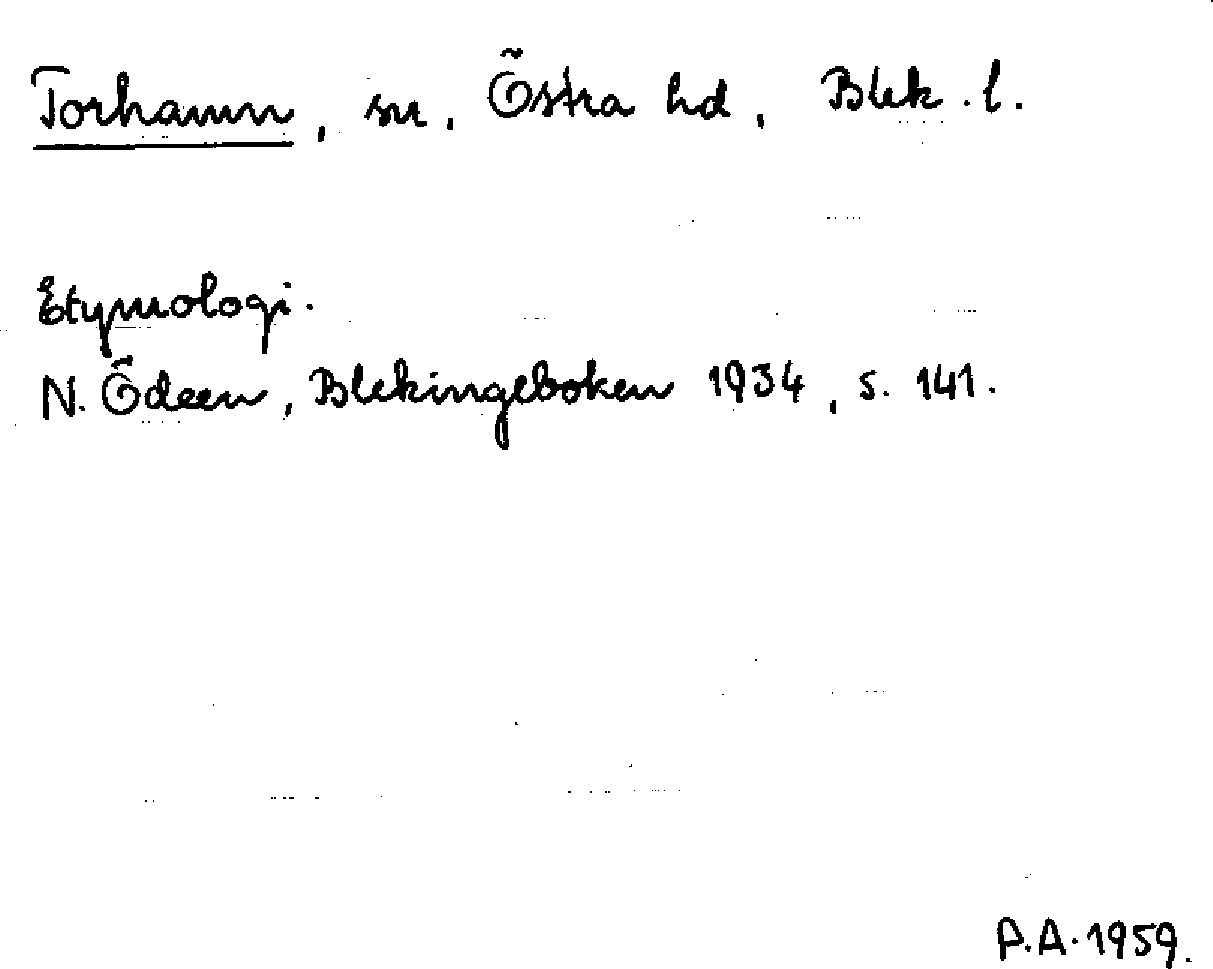 Torhamn, sn, Östra hd, Blek. l.
Etymologi.
N. Ödeen, Blekingeboken 1934, s. 141.
P.A. 1959.